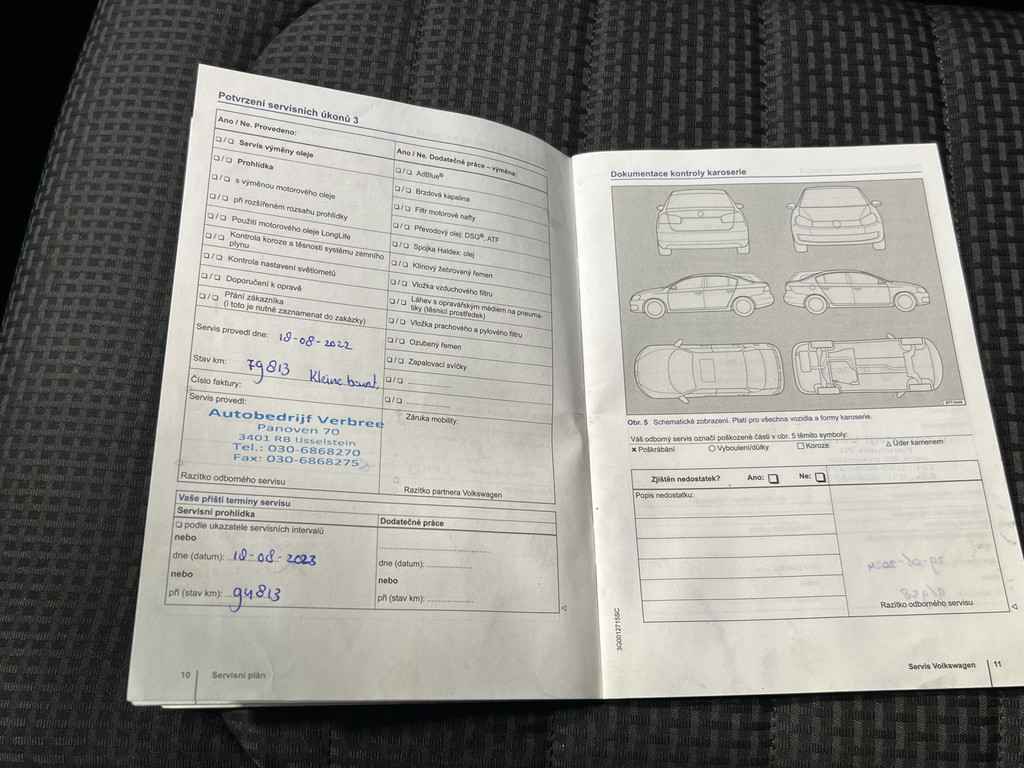 Potvrzení servisních úkonů 3
Ano / Ne. Provedeno:
❏ / ❏ Servis výměny oleje
❏ / ❏ Prohlídka
❏ / ❏ s výměnou motorového oleje
❏ / ❏ při rozšířeném rozsahu prohlídky
❏ / ❏ Použití motorového oleje LongLife
❏ / ❏ Kontrola koroze a těsnosti systému zemního
plynu
❏ / ❏ Kontrola nastavení světlometů
❏ / ❏ Doporučení k opravě
❏ / ❏ Přání zákazníka
(i toto je nutné zaznamenat do zakázky)
Ano / Ne. Dodatečné práce – výměna:
❏ / ❏ AdBlue®
❏ / ❏ Brzdová kapalina
❏ / ❏ Filtr motorové nafty
❏ / ❏ Převodový olej: DSG®, ATF
❏ / ❏ Spojka Haldex: olej
❏ / ❏ Klínový žebrovaný řemen
❏ / ❏ Vložka vzduchového filtru
❏ / ❏ Láhev s opravářským médiem na pneuma-
tiky (těsnicí prostředek)
❏ / ❏ Vložka prachového a pylového filtru
❏ / ❏ Ozubený řemen
❏ / ❏ Zapalovací svíčky
❏ / ❏
❏ / ❏
Servis provedl dne: 18-08-2022
Stav km: 79813 Kleine beurt,
Číslo faktury:
Servis provedl:
Autobedrijf Verbree
Panoven 70
3401 RB IJsselstein
Tel.: 030-6868270
Fax: 030-6868275
Razítko odborného servisu
Záruka mobility:
Razítko partnera Volkswagen
Vaše příští termíny servisu
Servisní prohlídka
❏ podle ukazatele servisních intervalů
nebo
dne (datum): 18-08-2023
nebo
při (stav km): 94813
Dodatečné práce
dne (datum):
nebo
při (stav km):
10 Servisní plán
Dokumentace kontroly karoserie
Obr. 5 Schematické zobrazení. Platí pro všechna vozidla a formy karoserie.
Váš odborný servis označí poškozené části v obr. 5 těmito symboly:
✕ Poškrábání ○ Vyboulení/důlky □ Koroze △ Úder kamenem
Zjištěn nedostatek? Ano: ❏ Ne: ❏
Popis nedostatku:
Razítko odborného servisu
3G0012715SC
Servis Volkswagen 11